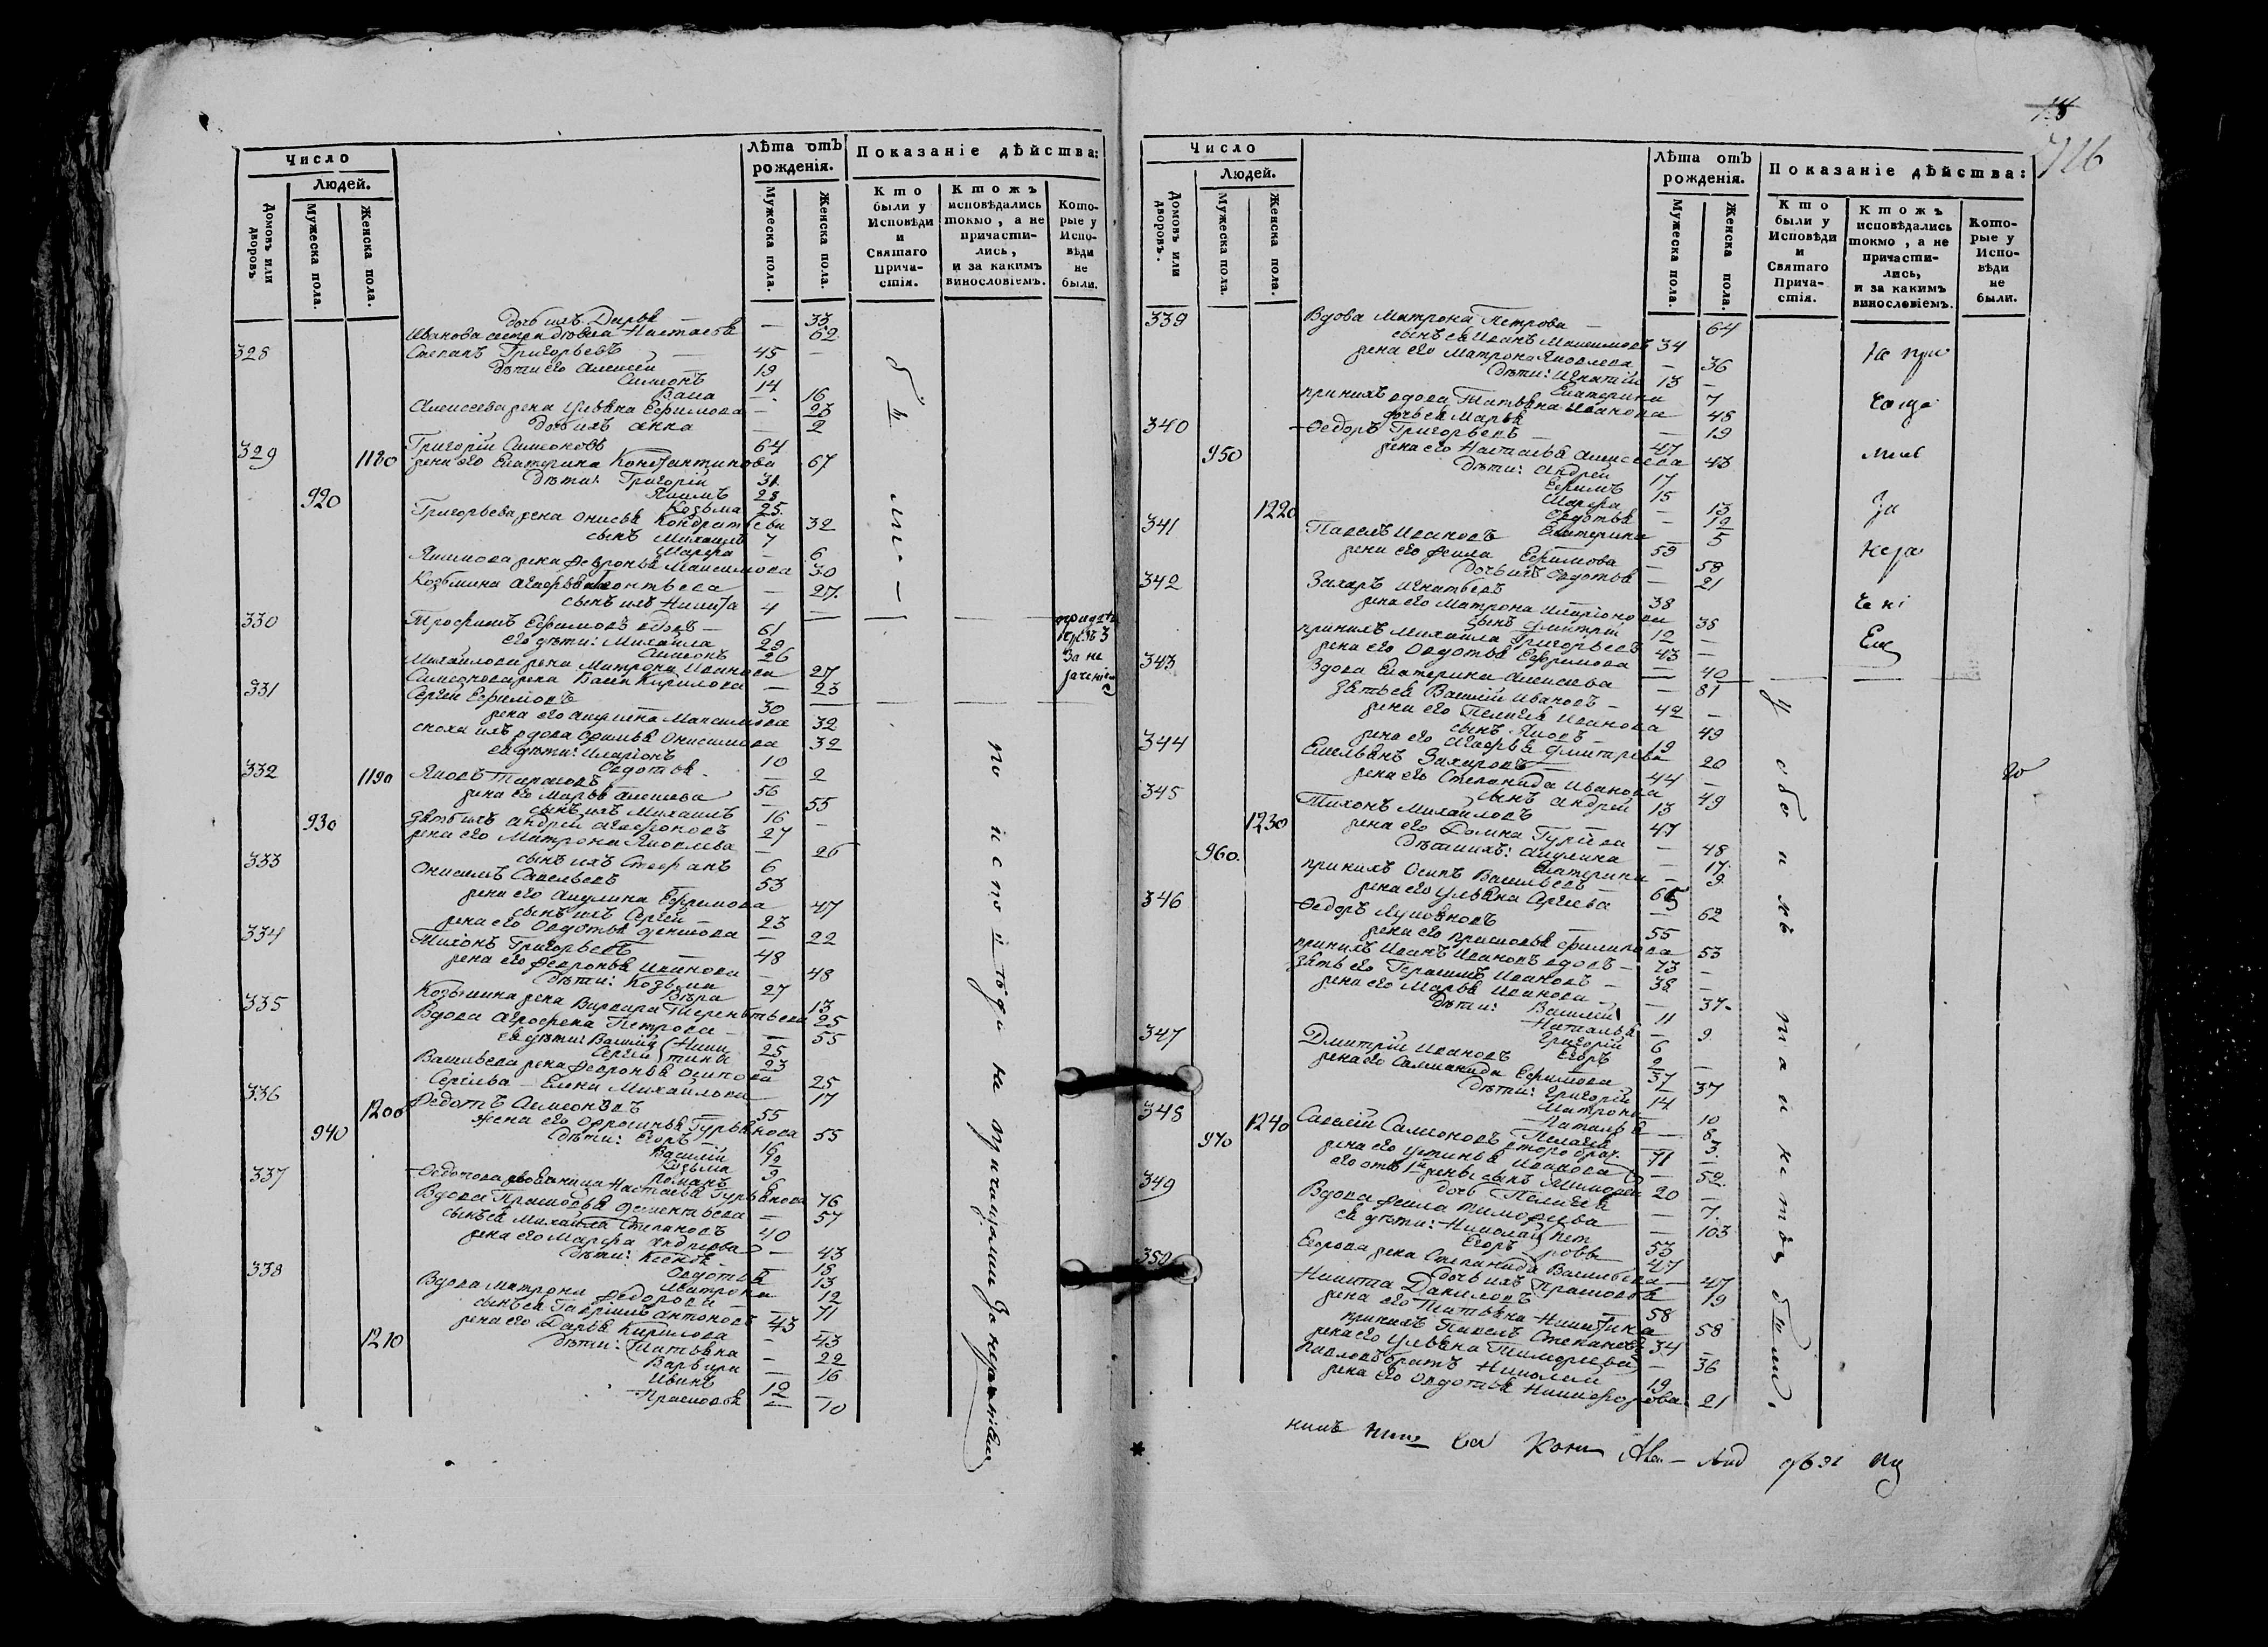 Число
Людей.
Домовъ или дворовъ.
Мужеска пола.
Женска пола.
Лѣта отъ рожденія.
Мужеска пола.
Женска пола.
Показаніе дѣйства:
Кто были у Исповѣди и Святаго Прича-стія.
Ктожъ исповѣдались токмо, а не причасти-лись, и за какимъ винословіемъ.
Кото-рые у Испо-вѣди не были.
дочь ихъ Дарья — 33
Иванова сестра дѣвка Настасья 62
328 Степанъ Григорьевъ 45 —
дѣти его Алексей 19
Симеонъ 14
16
Алексеева жена Ульяна Ефимова — 23
дочь ихъ Анна — 2
329 Григорій Симеоновъ 64
1180 жена его Екатерина Константинова 67
дѣти: Григорій 31
Якимъ 28
920 Козьма 25
Григорьева жена Онисья Кондратьева 32
сынъ Михаилъ 7
Марфа — 6
Якимова жена Февронья Максимова 30
Козьмина Агафья Леонтьева — 27
сынъ ихъ Никита 4 —
330 Трофимъ Ефимовъ вдовъ — 61
его дѣти: Михайла 29
Симеонъ 26
Михайлова жена Матрона Иванова 27
Симеонова жена Кирилова — 23
331 Сергей Ефимовъ 30
жена его Акулина Максимова 32
сноха ихъ вдова Офимья Онисимова 32
ея дѣти: Иларіонъ 10
Овдотья — 2
332 1190 Яковъ 56
жена его Марья Алексеева — 55
сынъ ихъ Михаилъ 16 —
930 зять ихъ Андрей Агафоновъ 27
жена его Матрона Яковлева — 26
сынъ ихъ Стефанъ 6
333 Онисимъ Савельевъ 53
жена его Акулина Ефремова 47
сынъ ихъ Сергей 23
жена его Овдотья — 22
334 Тихонъ Григорьевъ 48
жена его Февронья Иванова — 48
дѣти: Козьма 27
Вѣра 13
Козьмина жена Варвара Терентьева 25
335 Вдова Агрофена Петрова — 55
ея дѣти: Василій 25
Сергей 23
Васильева жена Февронья Осипова 25
Сергѣева — Елена Михайлова 17
336 Федотъ Симеоновъ 55
1200 жена его Офросинья Гурьянова 55
940 дѣти: Егоръ 16
Василій 12
Козьма 9
Романъ 6
Настасья Гурьянова 76
337 Вдова Прасковья Дементьева — 57
сынъ ея Михайла Степановъ 40
жена его Марфа Андреева — 43
дѣти: — 18
Овдотья 13
Матрона 12
338 Вдова Матрона Федорова 71
сынъ ея Гавріилъ Антоновъ 43
жена его Дарья Кирилова — 43
1210 дѣти: Татьяна — 22
Варвара — 16
Иванъ 12
Прасковья — 10
бы
ли —
по исповѣди не причащались за нераченіем
за не
раченіем
Число
Людей.
Домовъ или дворовъ.
Мужеска пола.
Женска пола.
Лѣта отъ рожденія.
Мужеска пола.
Женска пола.
Показаніе дѣйства:
Кто были у Исповѣди и Святаго Прича-стія.
Ктожъ исповѣдались токмо, а не причасти-лись, и за какимъ винословіемъ.
Кото-рые у Испо-вѣди не были.
339 Вдова Матрона Петрова — 64
сынъ ея Иванъ Максимовъ 34
жена его Матрона Яковлева — 36
дѣти: Игнатій 13 —
Екатерина 7
принихъ вдова Татьяна Иванова 45
дочь ея Марья — 19
340 Федоръ Григорьевъ 47
950 жена его Настасья Алексеева 43
дѣти: Андрей 17
Ефимъ 15
Марфа — 13
1220 Овдотья — 12
Екатерина 5
341 Павелъ Ивановъ 59
жена его Фекла Ефимова — 58
дочь ихъ Овдотья — 21
342 Захаръ Игнатьевъ 38
жена его Матрона Иларіонова 38
сынъ Дмитрій 12 —
принихъ Михайла Григорьевъ 43 —
жена его Овдотья Ефремова — 40
343 Вдова Екатерина Алексеева — 81
зять ея Василій Ивановъ — 42 —
жена его Пелагея Иванова 49
сынъ Яковъ 19
жена его Агафья Дмитрева 20
344 Емельянъ Захаровъ 44 —
жена его Степанида Иванова 49
сынъ Андрей 13
345 Тихонъ Михайловъ 47
1230 жена его Домна Гурѣева — 48
дѣти ихъ: Акулина — 17
960. Екатерина — 9
принихъ Осипъ Васильевъ — 65
жена его Ульяна Сергеева — 62
346 Федоръ 55
жена его Прасковья Филипова 53
принихъ Иванъ Ивановъ вдовъ — 73 —
зять его Герасимъ Ивановъ — 38 —
жена его Марья Иванова — 37
дѣти: Василей 11
Наталья — 9
Григорій 6
Егоръ 2
347 Дмитрій Ивановъ 37
жена его Саламанида Ефимова 37
дѣти: Григорій 14
Матрона 10
Наталья — 8
1240 Пелагея 3
348 970 Савелій Симеоновъ второбрач. 71
жена его Устинья Иванова — 52
его отъ 1й жены сынъ Тимофей 20 —
дочь Пелагея — 7
349 Вдова Фекла Тимофеева — 103
ея дѣти: Николай 53
Егоръ 47
Егорова жена Степанида Васильева — 47
дочь ихъ Прасковья 19
350 Никита Даниловъ 58
жена его Татьяна Никитина 58
принихъ Павелъ Степановъ 34 —
жена его Ульяна Тимофеева — 36
Павловъ братъ Николай 19
жена его Овдотья Никифорова 21
Не при
чаща
лись
За
нера
чені
Ем
У обоихъ таинствъ были.